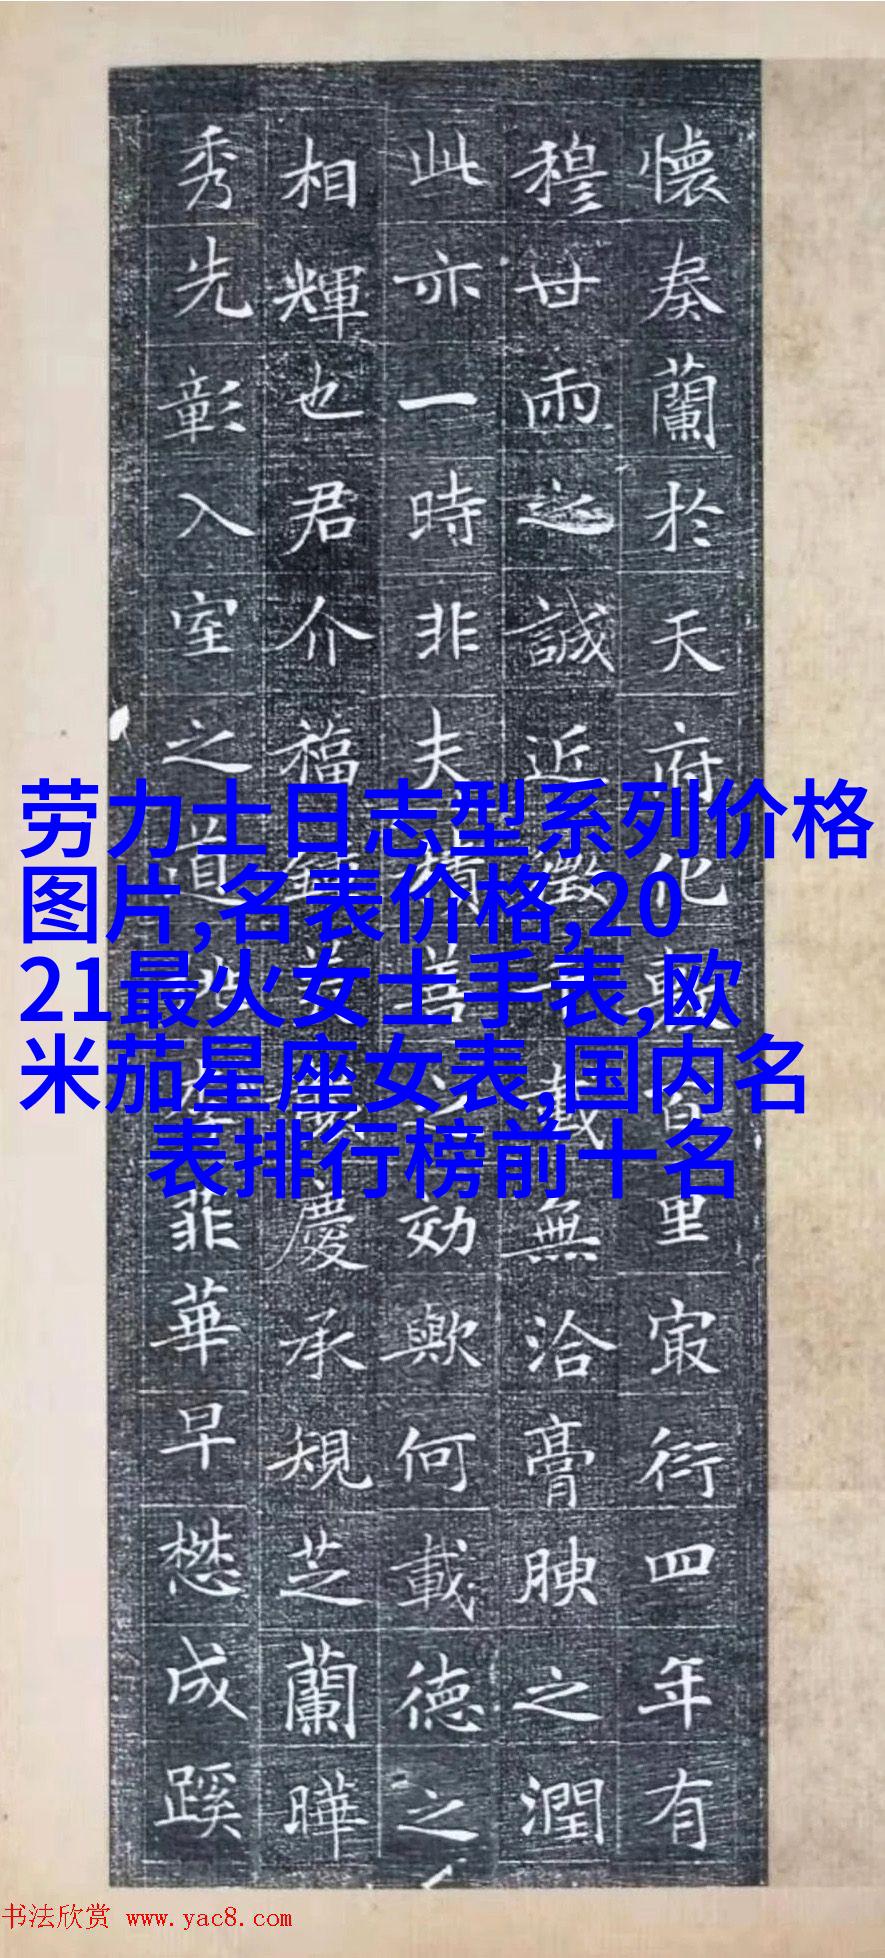 懷奏蘭於天府化百里㝡衍四年有
穆世雨之誠近徵載無洽膏腴之潤
此亦一時非夫積善之効歟何載德之
相輝也君介福慶承規芝蘭曄
秀先彰入室之道菲華早懋成蹊
劳力士日志型系列价格
图片,名表价格,20
21最火女士手表,欧
米茄星座女表,国内名
表排行榜前十名
书法欣赏 www.yac8.com